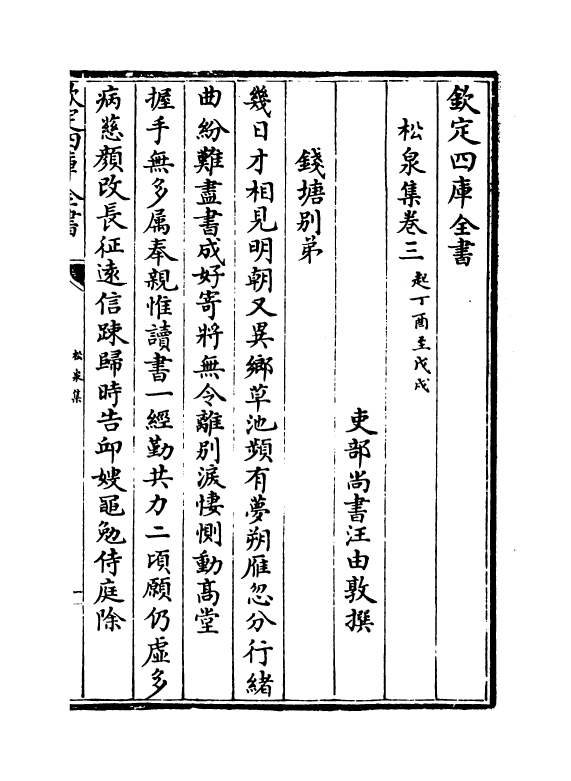 欽定四庫全書
松泉集卷三 起丁酉至戊戌
吏部尚書汪由敦撰
錢塘別弟
幾日才相見明朝又異鄉草池頻有夢朔雁忽分行緒
曲紛難盡書成好寄將無令離別淚悽惻動髙堂
握手無多屬奉親惟讀書一經勤共力二頃願仍虛多
病慈顔改長征遠信踈歸時告邱嫂黽勉侍庭除
欽定四庫全書
松泉集
一